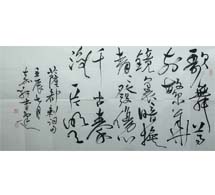 歌舞尊
前繁華
鏡裏暗換
青青髮傷心
千古秦
淮一片明月
薩都剌詞句
壬辰七月